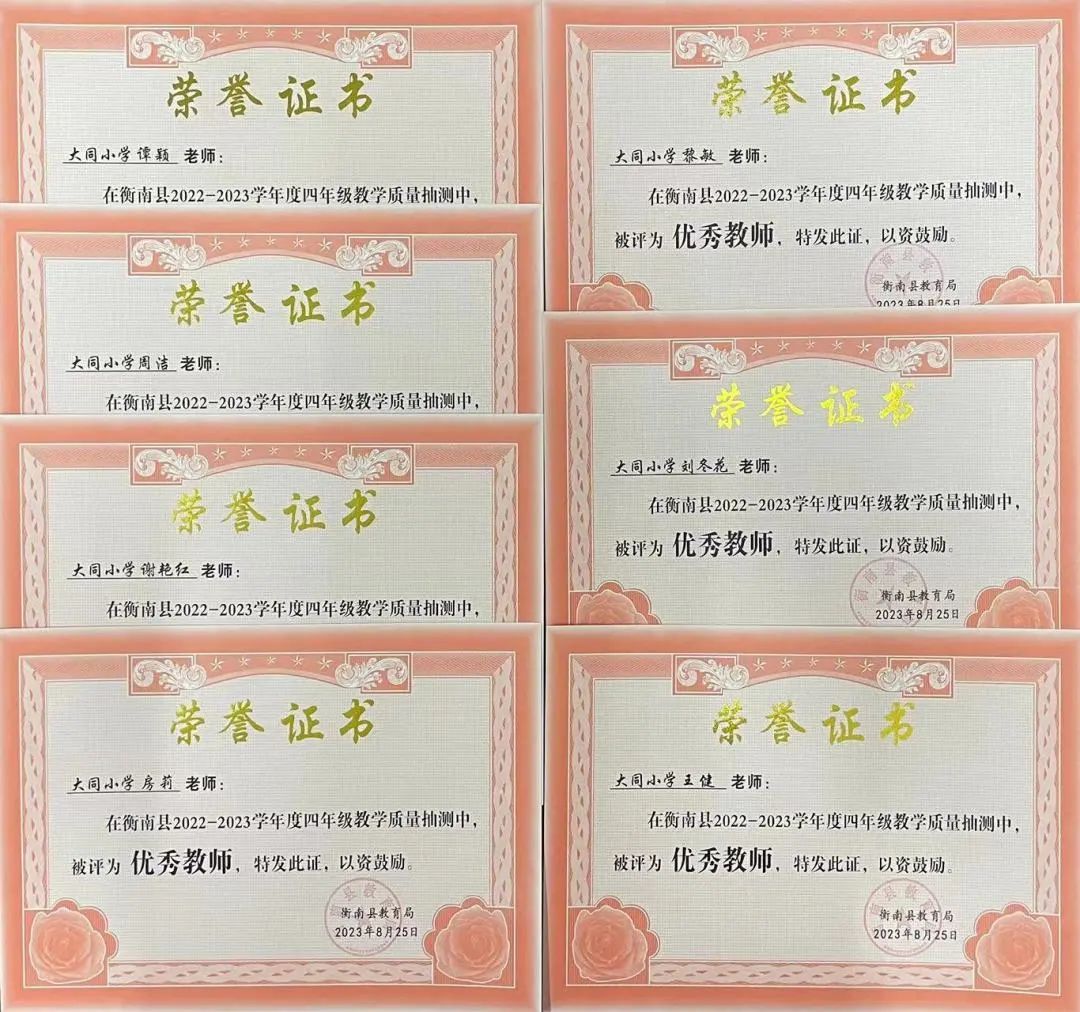 荣誉证书
大同小学谭颖 老师：
在衡南县2022-2023学年度四年级教学质量抽测中，
荣誉证书
大同小学周洁 老师：
在衡南县2022-2023学年度四年级教学质量抽测中，
荣誉证书
大同小学谢艳红 老师：
在衡南县2022-2023学年度四年级教学质量抽测中，
荣誉证书
大同小学房莉 老师：
在衡南县2022-2023学年度四年级教学质量抽测中，
被评为 优秀教师，特发此证，以资鼓励。
衡南县教育局
2023年8月25日
荣誉证书
大同小学黎敏 老师：
在衡南县2022-2023学年度四年级教学质量抽测中，
被评为 优秀教师，特发此证，以资鼓励。
衡南县教育局
2023年8月25日
荣誉证书
大同小学刘冬花 老师：
在衡南县2022-2023学年度四年级教学质量抽测中，
被评为 优秀教师，特发此证，以资鼓励。
衡南县教育局
2023年8月25日
荣誉证书
大同小学王健 老师：
在衡南县2022-2023学年度四年级教学质量抽测中，
被评为 优秀教师，特发此证，以资鼓励。
衡南县教育局
2023年8月25日